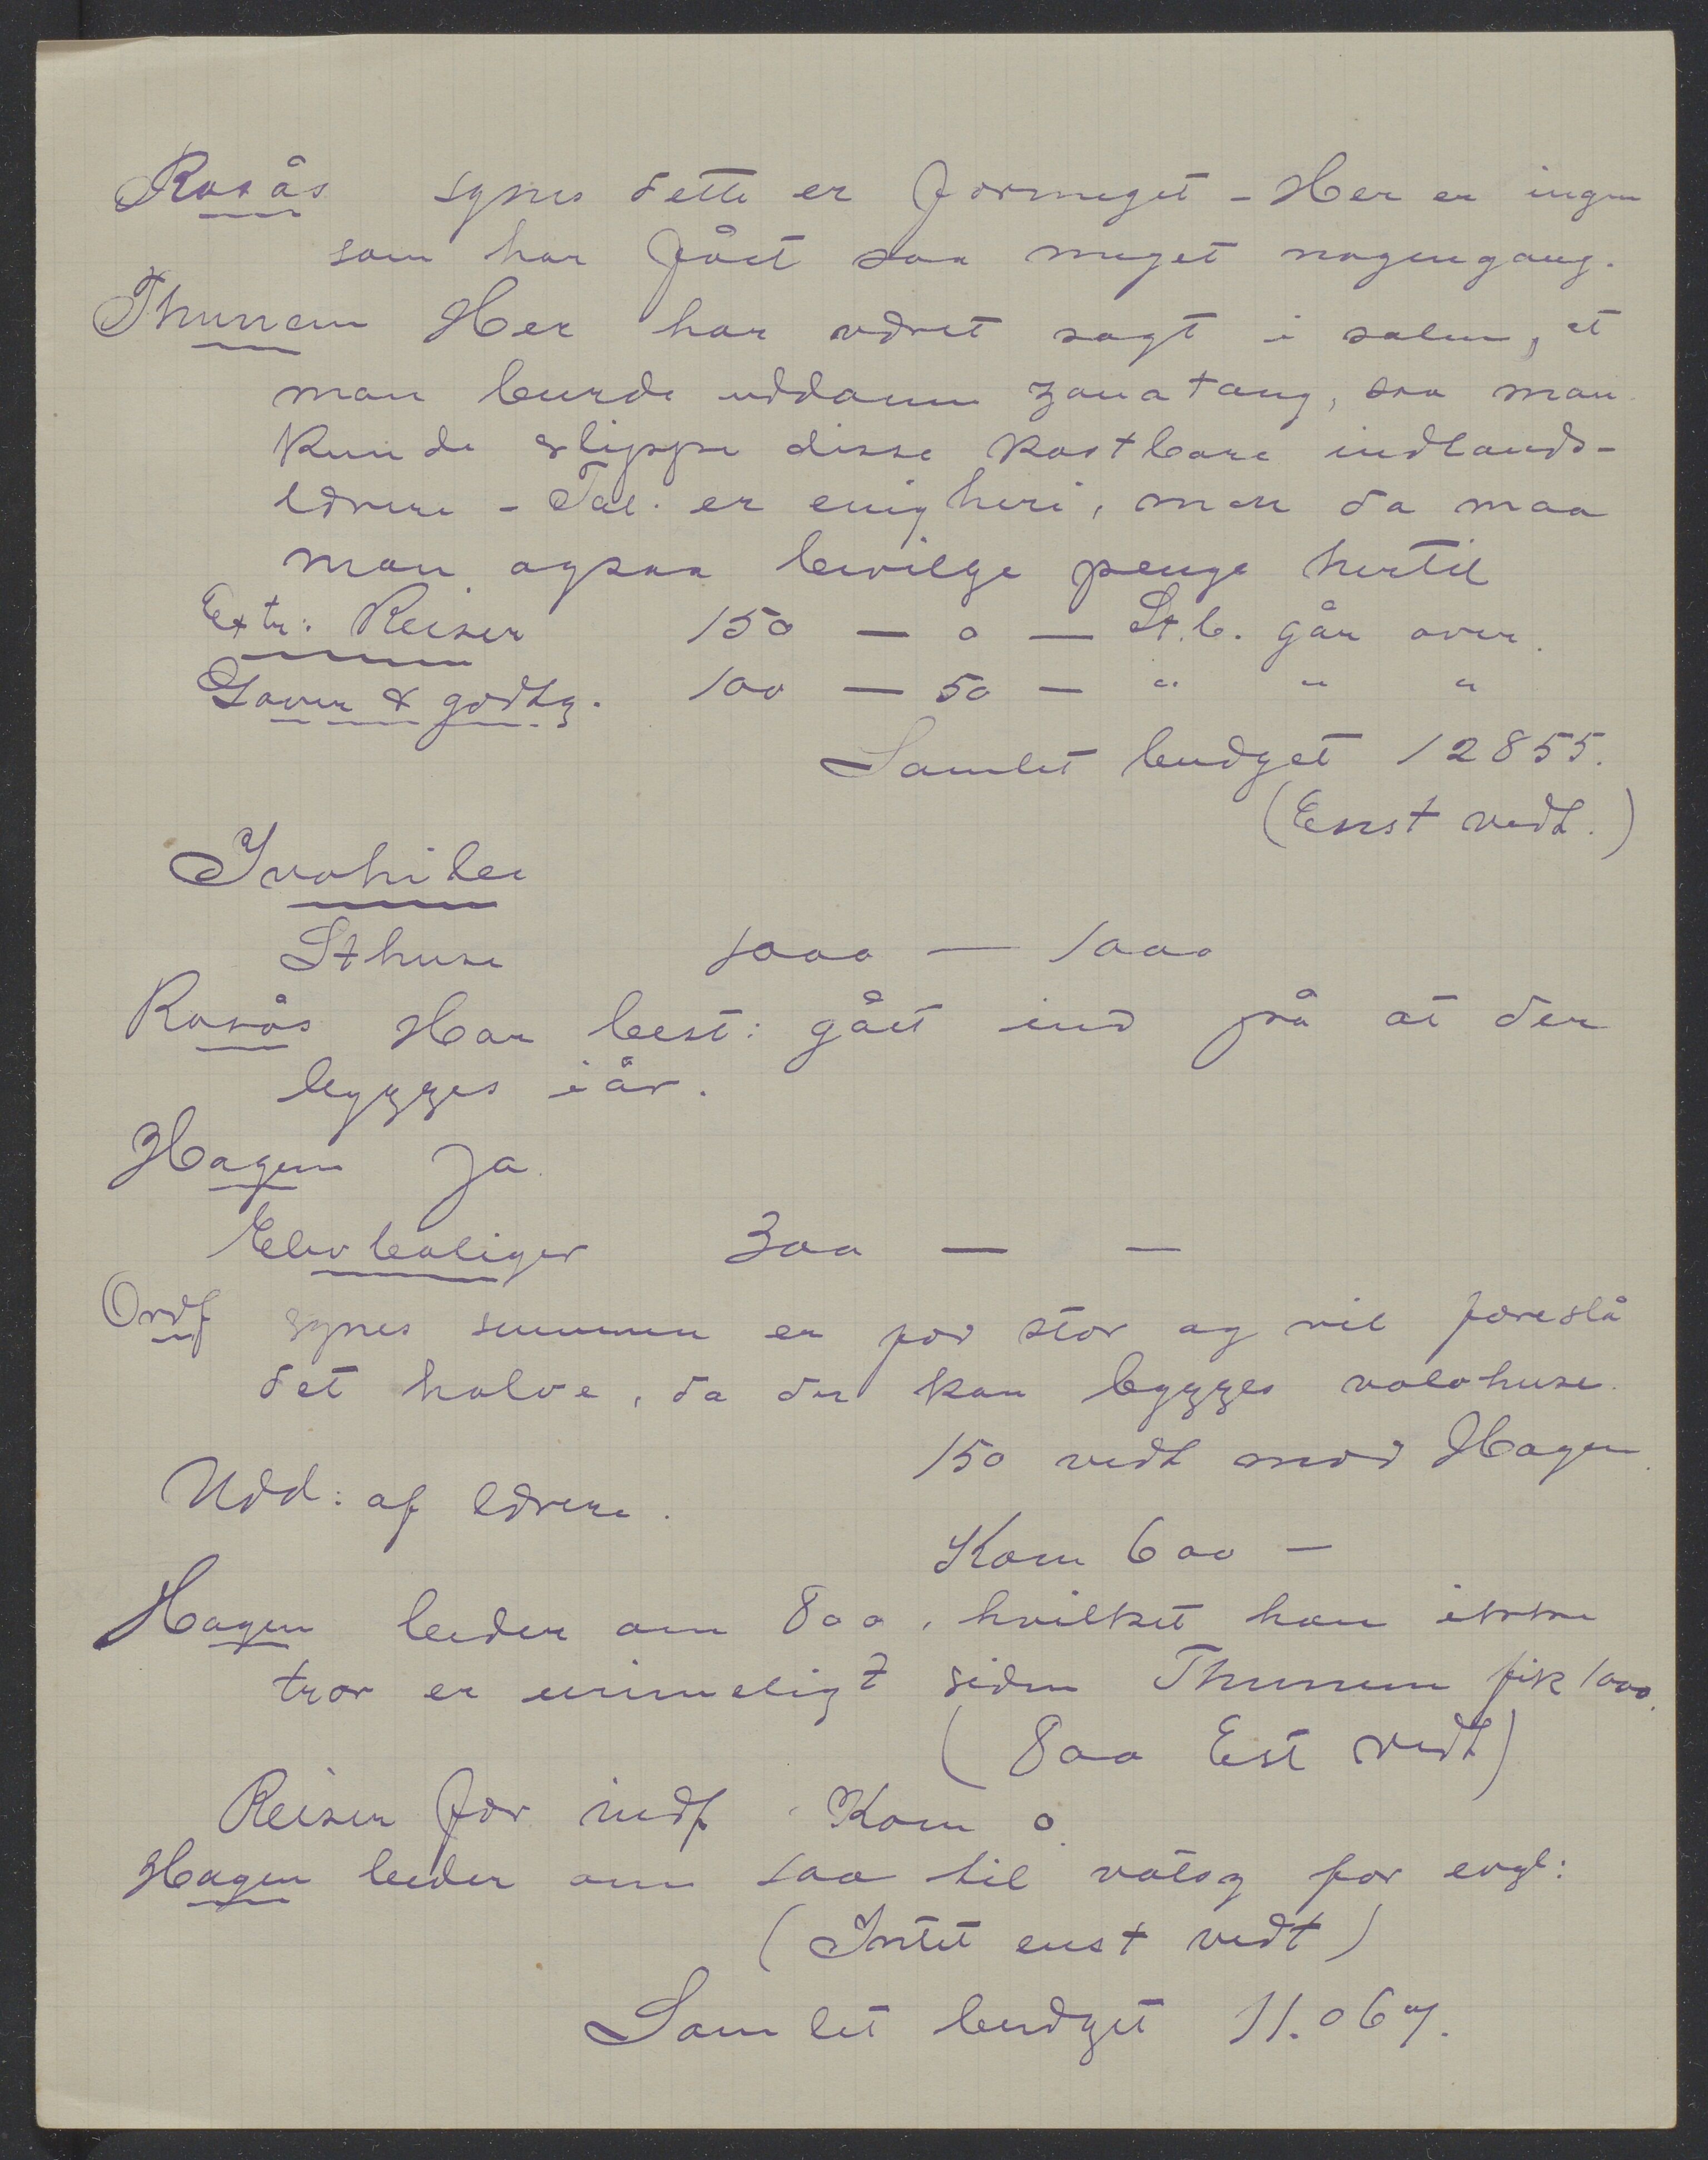 Rosås synes dette er formeget - Her er ingen
som har fået saa meget nogengang.
Thunem Her har været sagt i salen, at
man burde uddanne zanatany, saa man
kunde slippe disse kostbare indlands-
lærere - Tal. er enig heri, men da maa
man ogsaa bevilge penge hertil
Extr: Reiser 150 — 0 — St.b. går over.
Gaver & godtg. 100 — 50 — " " "
Samlet budget 12855.
(Enst vedt.)
Ivohibe
Sthuse 1000 — 1000
Rosås Har best: gået ind på at der
bygges iår.
Hagen Ja
Elevboliger 300 — —
Ordf synes summen er for stor og vil foreslå
det halve, da der kan bygges valohuse.
150 vedt mod Hagen.
Udd: af lærere.
Kom 600 —
Hagen beder om 800, hvilket han ikke
tror er urimeligt siden Thunem fik 1000.
(800 Est vedt)
Reiser for indf Kom 0.
Hagen beder om 100 til vatsy for evgl:
(Intet enst vedt)
Samlet budget 11.067.